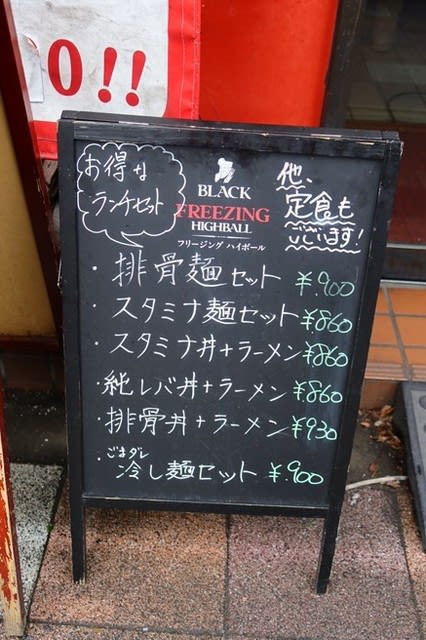 0!!
お得な
ランチセット
BLACK
FREEZING
HIGHBALL
フリージング ハイボール
他、
定食も
ございます!
・排骨麺セット ¥900
・スタミナ麺セット ¥860
・スタミナ丼+ラーメン ¥860
・純レバ丼+ラーメン ¥860
・排骨丼+ラーメン ¥930
・ごまダレ
冷し麺セット ¥900